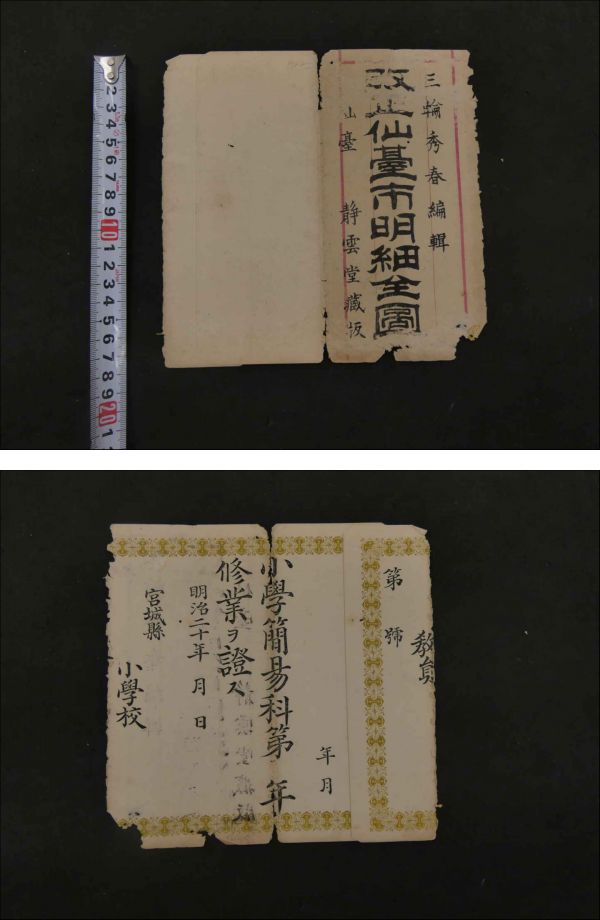 三輪秀春編輯
改正仙臺市明細全圖
仙臺 静雲堂藏板
2 3 4 5 6 7 8 9 10 1 2 3 4 5 6 7 8 9 20 1
教員
第 號
年月
小學簡易科第 年
修業ヲ證ス
明治二十年 月 日
宮城縣
小學校
静雲堂藏版